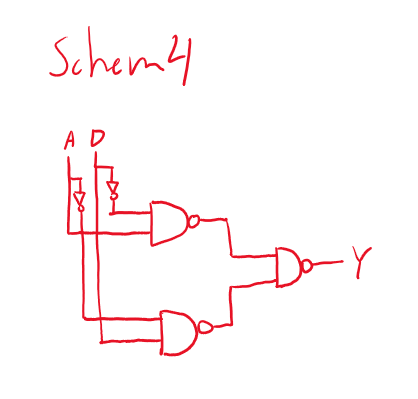 Schem4
A D
Y